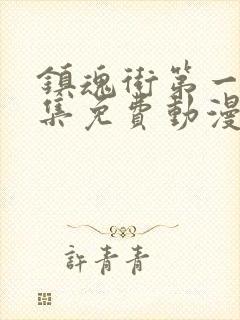 鎮魂街第一
集免費動漫
許青青